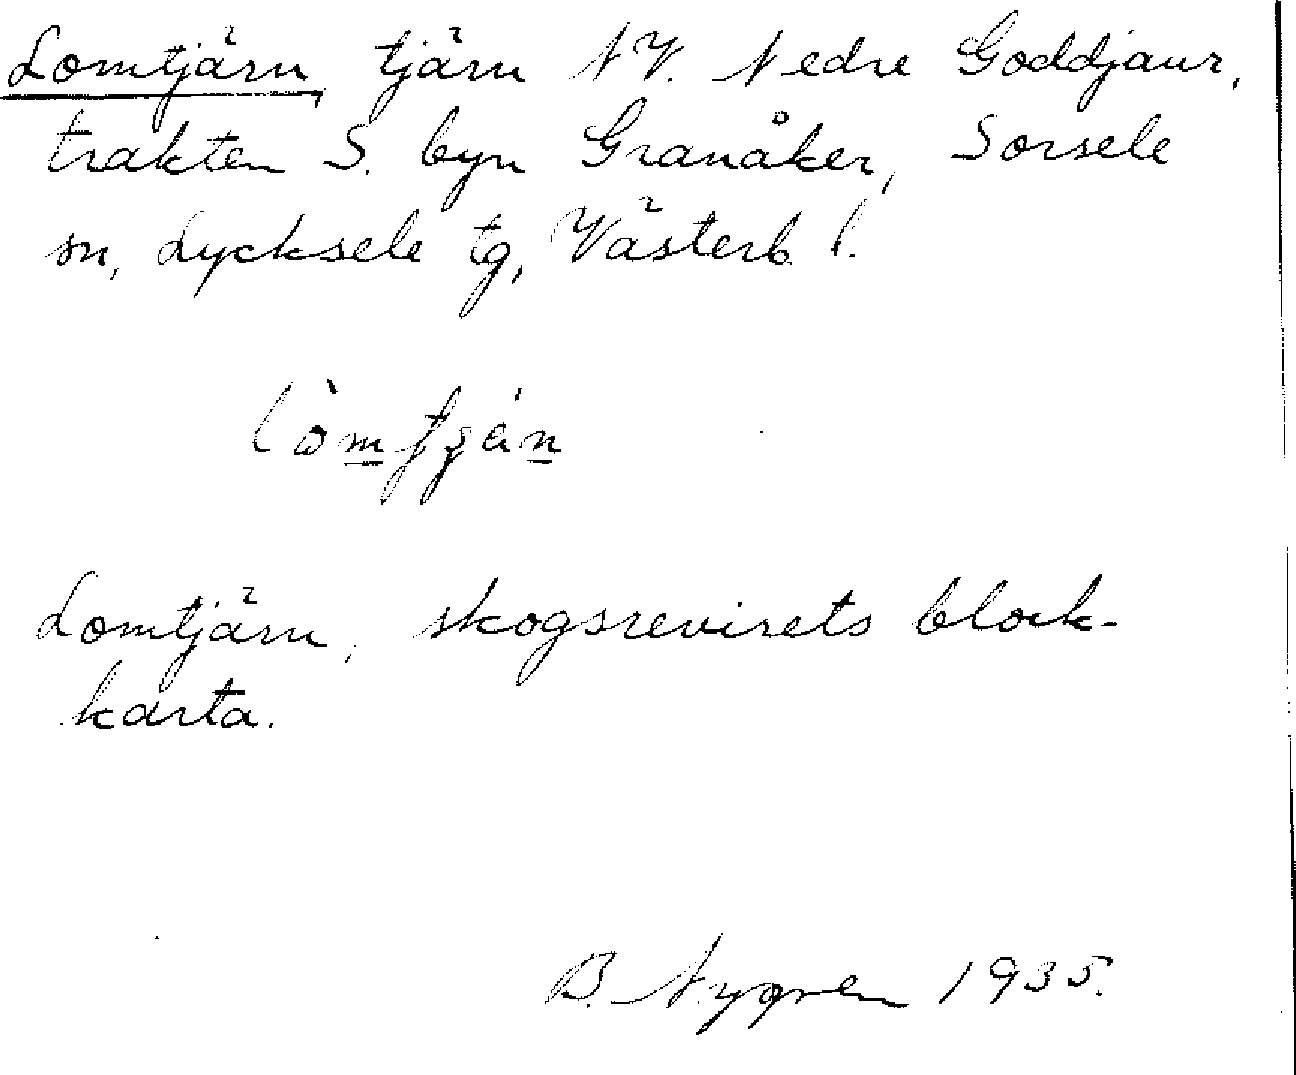 Lomtjärn, tjärn NV. Nedre Goddjaur,
trakten S. byn Granåker, Sorsele
sn, Lycksele tg, Västerb. l.
Lomtjärn, skogsrevirets block-
karta.
B. Nygren 1935.